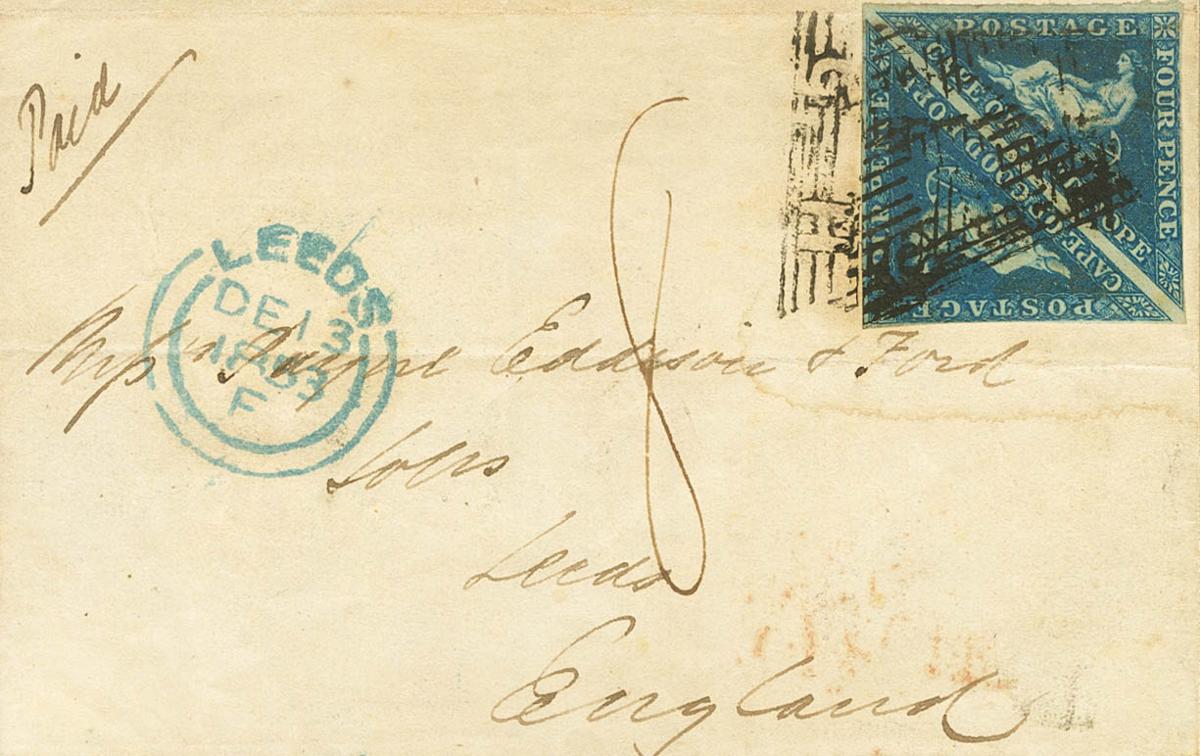 Paid
POSTAGE
FOUR PENCE
CAPE OF GOOD HOPE
CAPE OF GOOD HOPE
POSTAGE
FOUR PENCE
8
LEEDS
DE 13
1853
F
Payne Eddison & Ford
Solrs
Leeds
England